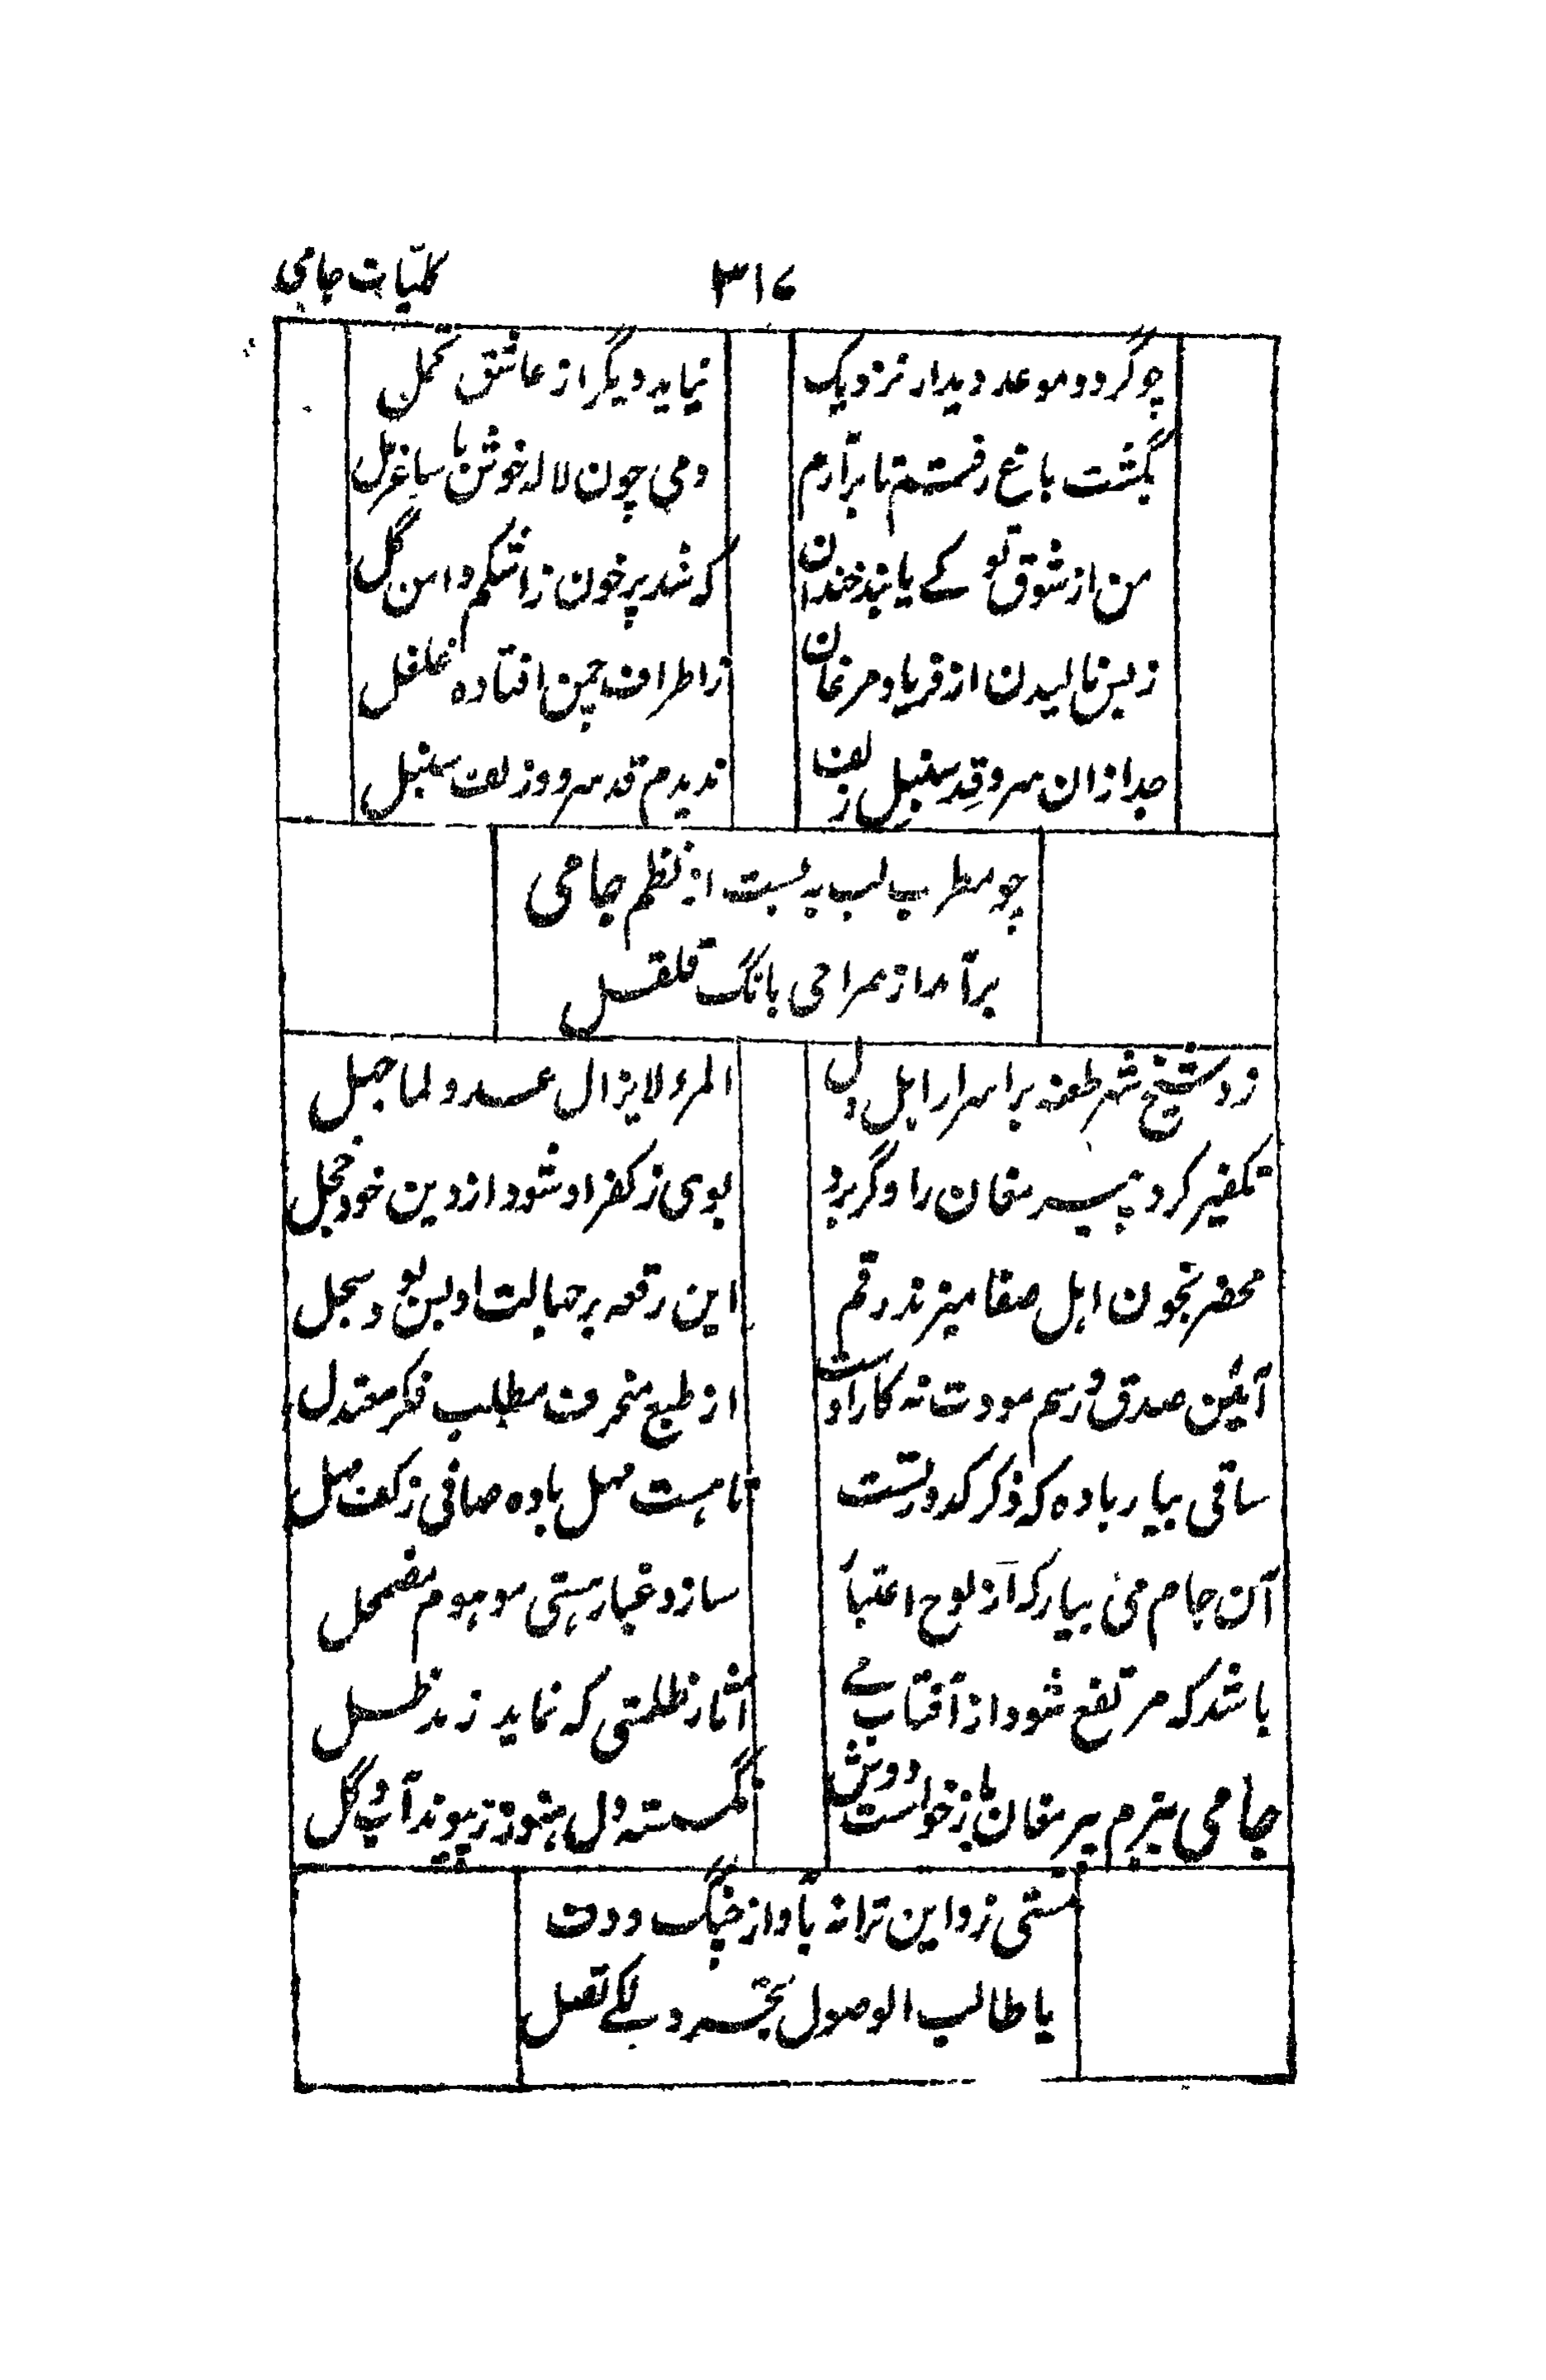 ۳۱۶ کلیات جامی
چو گردد موعد دیدار نزدیک نیاید دیگر از عاشق تحمل
بگشت باغ رفتم تا برآرم دمی چون لاله خوش با ساغر مل
من از شوق تو کے یابند خندان که شد پر خون ز اشکم دامن گل
ز بس نالیدن از فریاد مرغان ز اطراف چمن افتاده غلغل
جدا زان سرو قد سنبل زلف ندیدم قد سرو و زلف سنبل
چو مطرب لب به بست از نظم جامی
برآمد از صراحی بانگ قلقل
زد شیخ شهر طعنه بر اسرار اهل دل المرء لایزال عدو لما جهل
تکفیر کرد پیر مغان را و گر برد بوی ز کفر او شود از دین خود خجل
محضر بخون اهل صفا میزند رقم این رقعه بر جهالت او بس بود سجل
آئین صدق و رسم مودت نه کار اوست از طبع منحرف مطلب فکر معتدل
ساقی بیار باده که ذکر کدورتست تا هست مهل باده صافی ز کف مهل
آن جام می بیار که از لوح اعتبار سازد غبار هستی موهوم مضمحل
باشد که مرتفع شود از آفتاب مے آثار ظلمتی که نماید ز مد ظل
جامی ببزم پیر مغان باز خواست دوش نگسسته دل هنوز ز پیوند آب و گل
مستی زد این ترانه بآواز چنگ و دف
یا طالب الوصول تجرد لکے تصل